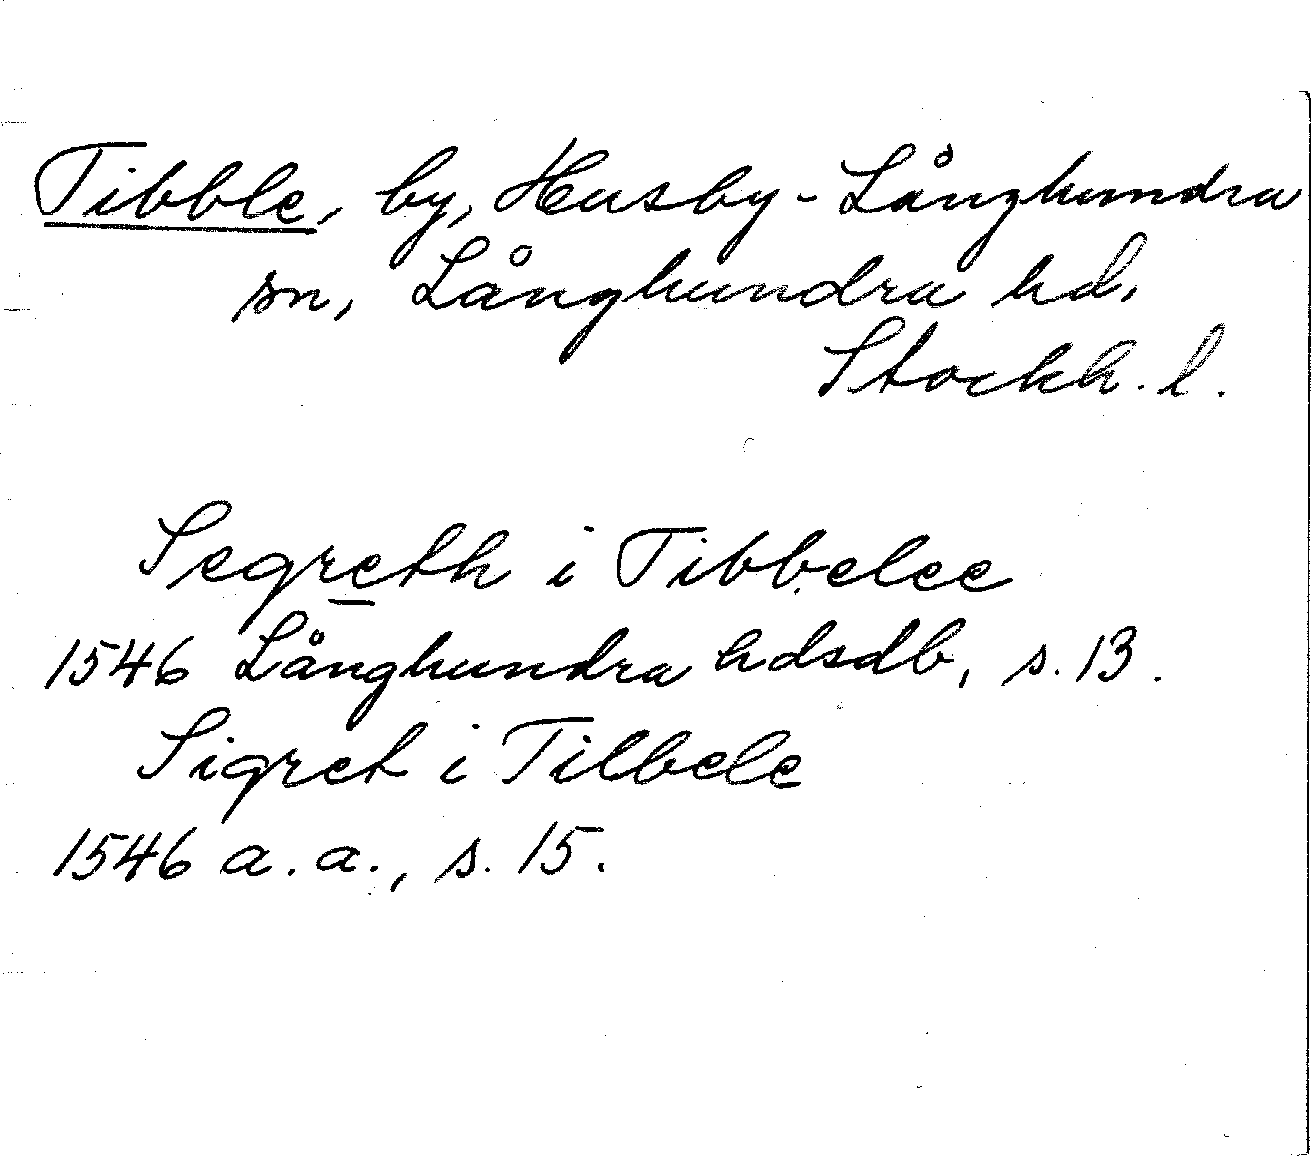 Tibble, by, Husby-Långhundra
sn, Långhundra hd.
Stockh. l.
Segreth i Tibbelee
1546 Långhundra hdsdb, s. 13.
Sigret i Tilbele
1546 a. a., s. 15.